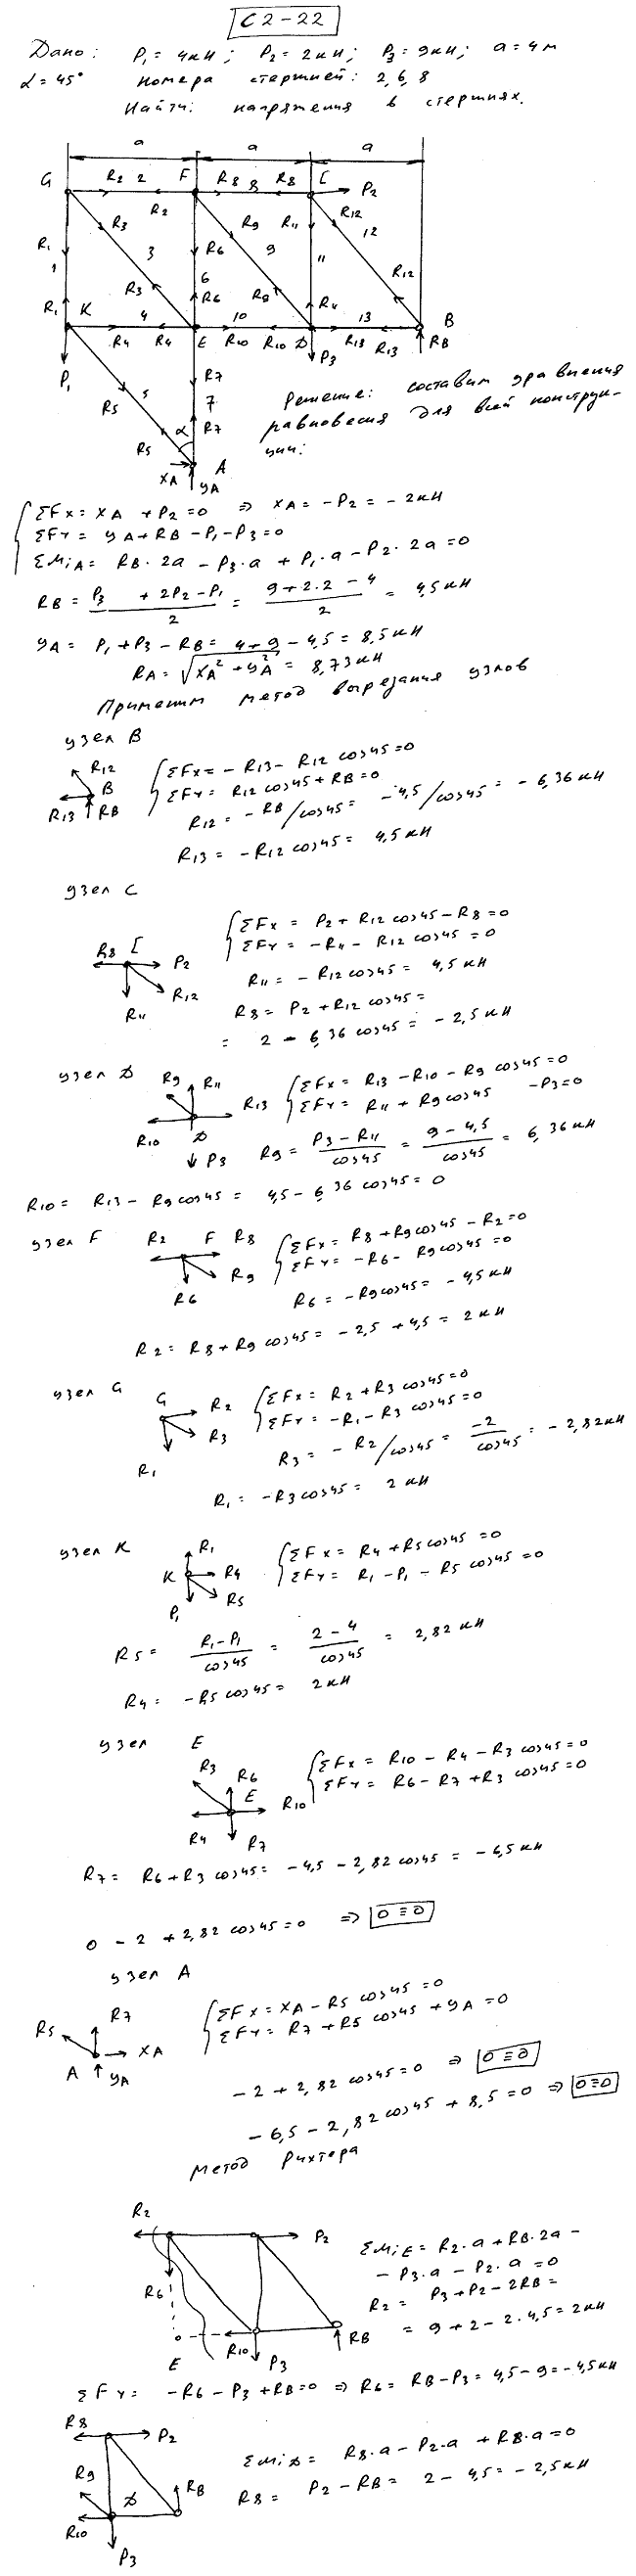 С2-22
Дано: P₁ = 4кН; P₂ = 2кН; P₃ = 9кН; a = 4м
α = 45° номера стержней: 2, 6, 8
Найти: напряжения в стержнях.
a a a
G R₂ 2 F R₈ 8 R₈ C P₂
R₂ R₃ R₉ R₁₁ R₁₂ 12
R₁ 3 R₆ 9 11
1 6 R₁₂
R₁ K R₃ R₆ R₉ R₄ B
4 10 13
R₄ R₄ E R₁₀ R₁₀ D R₁₃ R₁₃ R_B
P₁ R₇ P₃
5 7
R₅ R₇
R₅ α
X_A A
y_A
Решение: составим уравнения
равновесия для всей конструк-
ции:
ΣFx = X_A + P₂ = 0 ⇒ X_A = -P₂ = -2кН
ΣFy = y_A + R_B - P₁ - P₃ = 0
ΣM_iA = R_B · 2a - P₃ · a + P₁ · a - P₂ · 2a = 0
R_B = (P₃ + 2P₂ - P₁)/2 = (9 + 2·2 - 4)/2 = 4,5кН
y_A = P₁ + P₃ - R_B = 4 + 9 - 4,5 = 8,5кН
R_A = √(X_A² + y_A²) = 8,73кН
Применим метод вырезания узлов
узел B
R₁₂ B R₁₃ R_B
ΣFx = -R₁₃ - R₁₂ cos45 = 0
ΣFy = R₁₂ cos45 + R_B = 0
R₁₂ = -R_B/cos45 = -4,5/cos45 = -6,36кН
R₁₃ = -R₁₂ cos45 = 4,5кН
узел C
R₈ C P₂ R₁₂ R₁₁
ΣFx = P₂ + R₁₂ cos45 - R₈ = 0
ΣFy = -R₁₁ - R₁₂ cos45 = 0
R₁₁ = -R₁₂cos45 = 4,5кН
R₈ = P₂ + R₁₂ cos45 =
= 2 - 6,36 cos45 = -2,5кН
узел D
R₉ R₁₁ R₁₃ R₁₀ D P₃
ΣFx = R₁₃ - R₁₀ - R₉ cos45 = 0
ΣFy = R₁₁ + R₉cos45 - P₃ = 0
R₉ = (P₃ - R₁₁)/cos45 = (9 - 4,5)/cos45 = 6,36кН
R₁₀ = R₁₃ - R₉cos45 = 4,5 - 6,36 cos45 = 0
узел F
R₂ F R₈ R₉ R₆
ΣFx = R₈ + R₉cos45 - R₂ = 0
ΣFy = -R₆ - R₉cos45 = 0
R₆ = -R₉cos45 = -4,5кН
R₂ = R₈ + R₉ cos45 = -2,5 + 4,5 = 2кН
узел G
G R₂ R₃ R₁
ΣFx = R₂ + R₃ cos45 = 0
ΣFy = -R₁ - R₃ cos45 = 0
R₃ = -R₂/cos45 = -2/cos45 = -2,82кН
R₁ = -R₃cos45 = 2кН
узел K
R₁ K R₄ R₅ P₁
ΣFx = R₄ + R₅cos45 = 0
ΣFy = R₁ - P₁ - R₅ cos45 = 0
R₅ = (R₁ - P₁)/cos45 = (2 - 4)/cos45 = 2,82кН
R₄ = -R₅cos45 = 2кН
узел E
R₃ R₆ E R₁₀ R₄ R₇
ΣFx = R₁₀ - R₄ - R₃ cos45 = 0
ΣFy = R₆ - R₇ + R₃ cos45 = 0
R₇ = R₆ + R₃ cos45 = -4,5 - 2,82 cos45 = -6,5кН
0 - 2 + 2,82 cos45 = 0 ⇒ 0 ≡ 0
узел A
R₅ R₇ X_A A y_A
ΣFx = X_A - R₅ cos45 = 0
ΣFy = R₇ + R₅ cos45 + y_A = 0
-2 + 2,82 cos45 = 0 ⇒ 0 ≡ 0
-6,5 - 2,82cos45 + 8,5 = 0 ⇒ 0 ≡ 0
Метод Рихтера
R₂ P₂ R₆ R₁₀ R_B E P₃
ΣM_iE = R₂ · a + R_B · 2a -
- P₃ · a - P₂ · a = 0
R₂ = P₃ + P₂ - 2R_B =
= 9 + 2 - 2 · 4,5 = 2кН
ΣFy = -R₆ - P₃ + R_B = 0 ⇒ R₆ = R_B - P₃ = 4,5 - 9 = -4,5кН
R₈ P₂ R₉ D R_B R₁₀ P₃
ΣM_iD = R₈ · a - P₂ · a + R_B · a = 0
R₈ = P₂ - R_B = 2 - 4,5 = -2,5кН